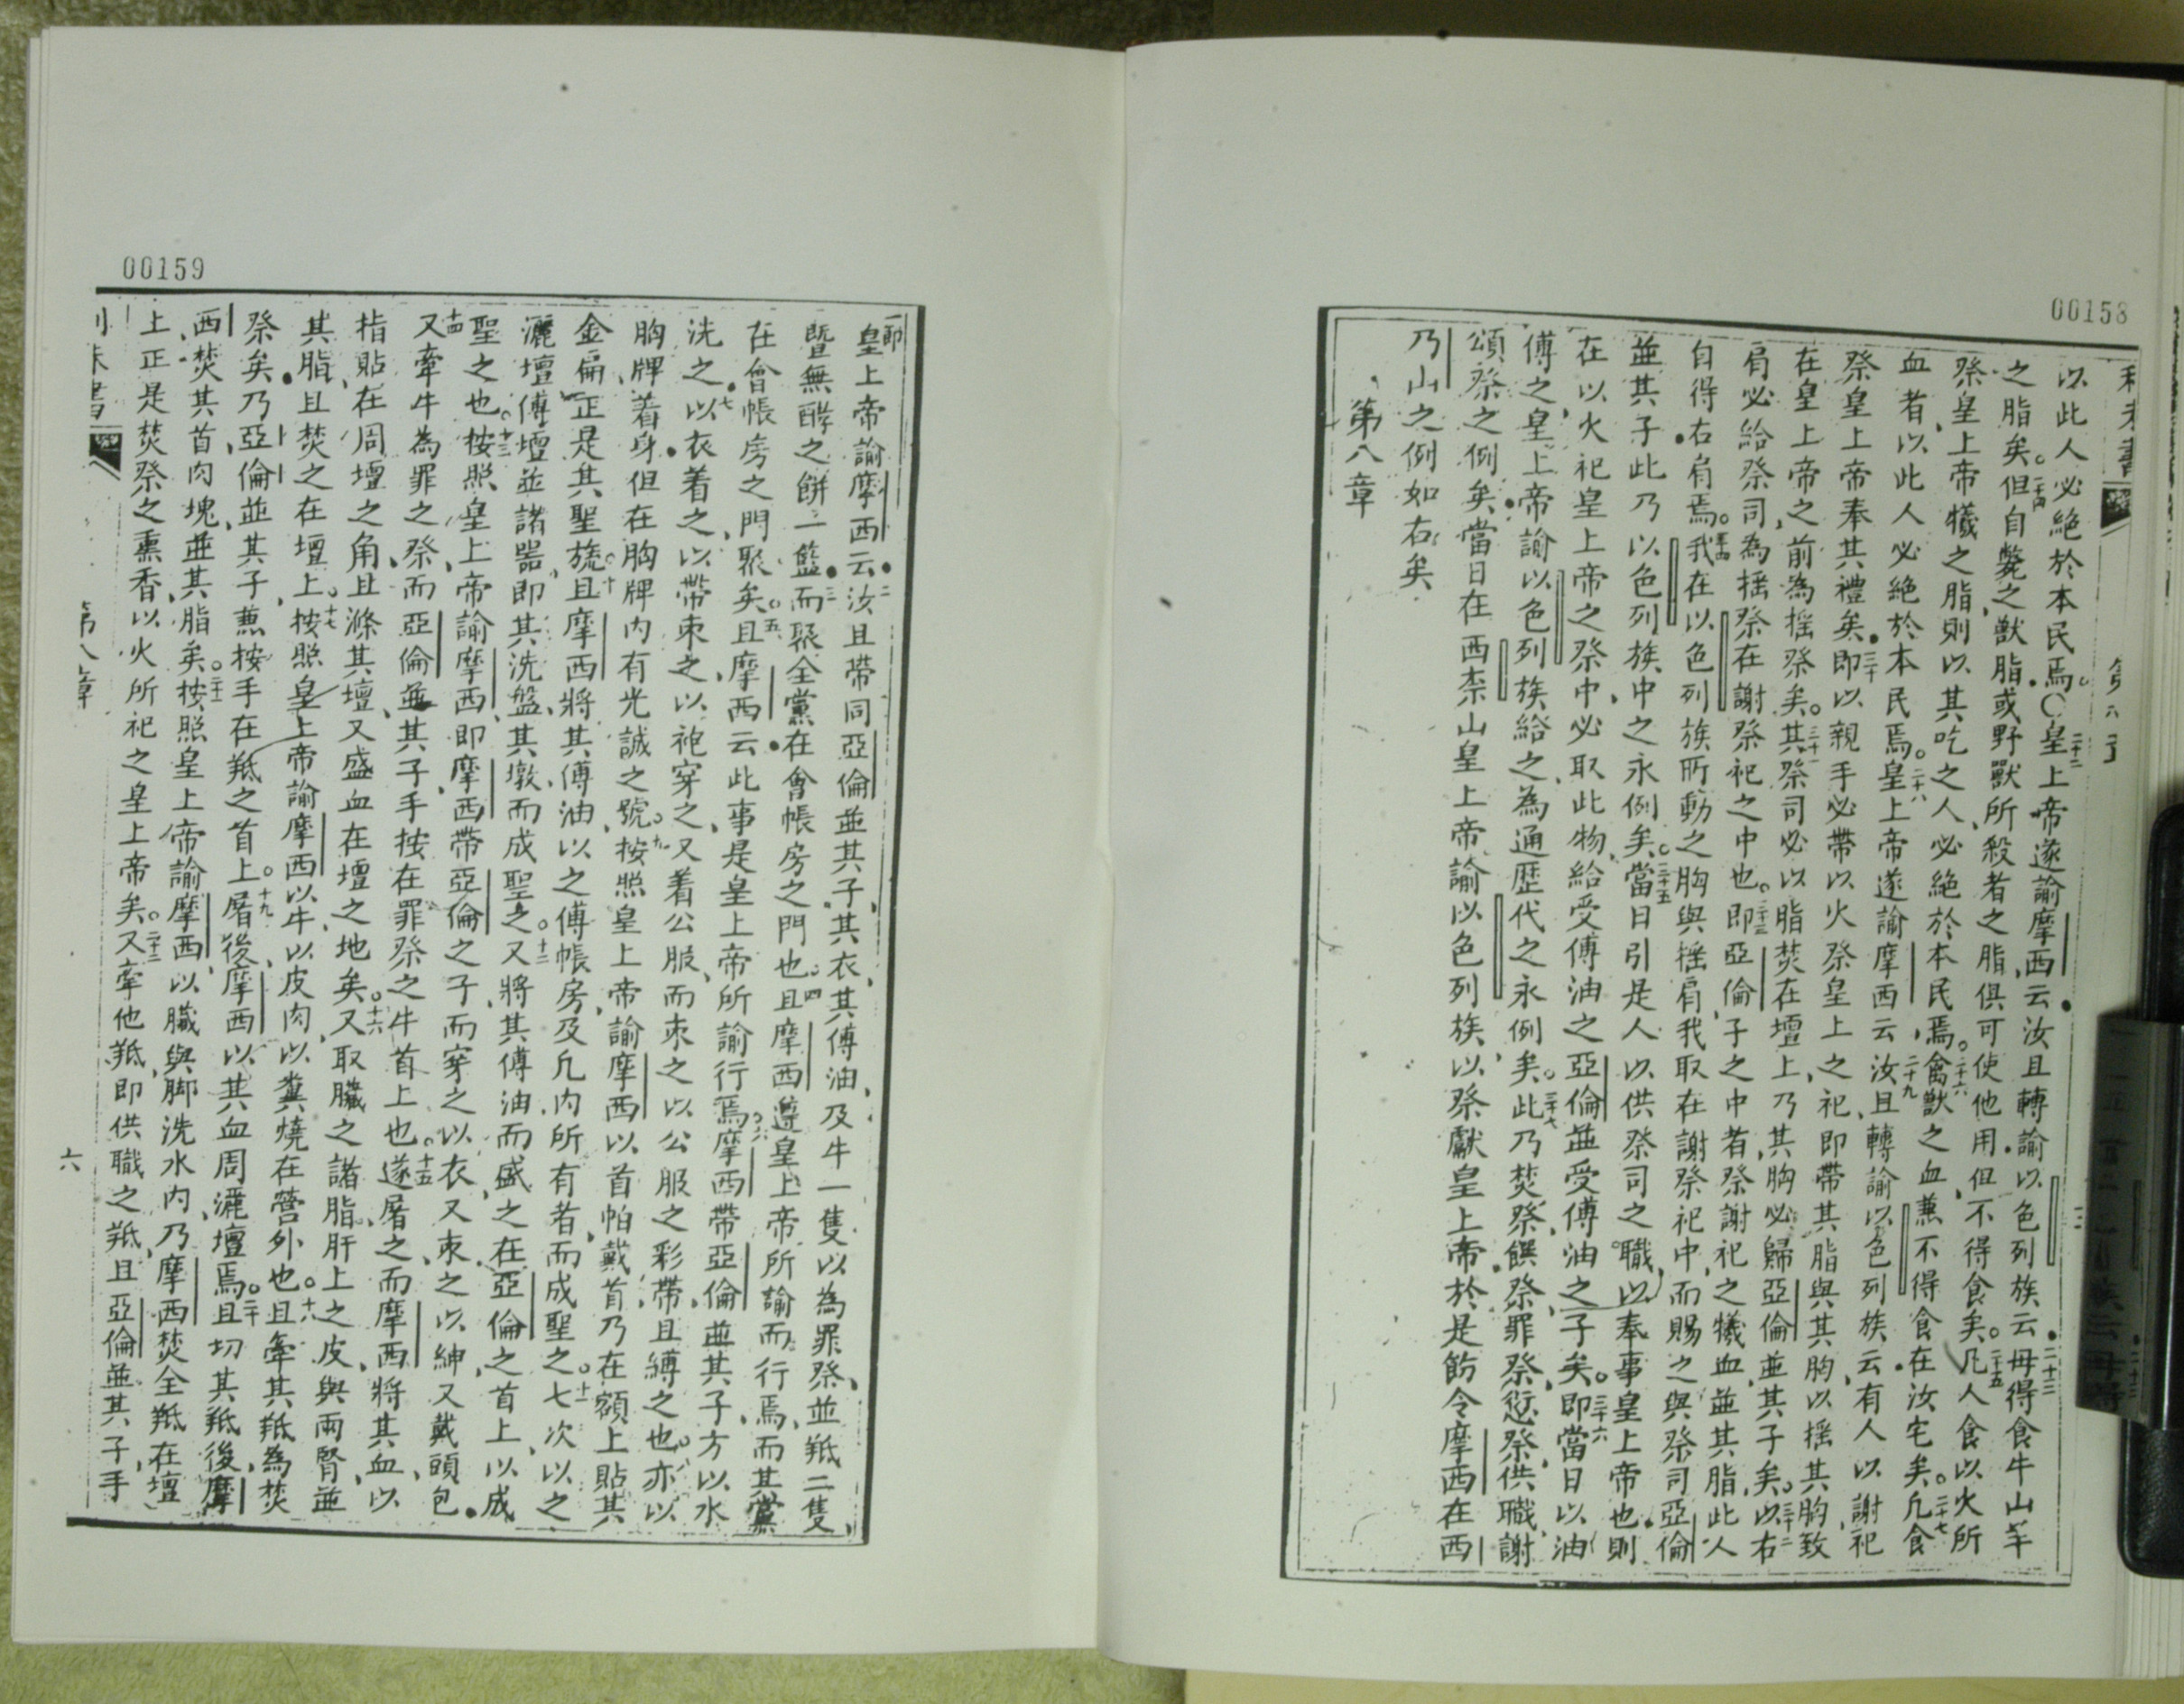 00158
以此人必絕於本民焉。〇二十二皇上帝遂諭摩西云汝且轉諭以色列族云二十三毋得食牛山羊
之脂矣。二十四但自斃之獸脂或野獸所殺者之脂俱可使他用但不得食矣。二十五凡人食以火所
祭皇上帝犧之脂則以其吃之人必絕於本民焉。二十六禽獸之血兼不得食在汝宅矣。二十七凡食
血者以此人必絕於本民焉。二十八皇上帝遂諭摩西云二十九汝且轉諭以色列族云有人以謝祀
祭皇上帝奉其禮矣三十即以親手必帶以火祭皇上之祀即帶其脂與其胸以搖其胸致
在皇上帝之前為搖祭矣。三十一其祭司必以脂焚在壇上乃其胸必歸亞倫並其子矣。三十二以右
肩必給祭司為搖祭在謝祭祀之中也。三十三即亞倫子之中者祭謝祀之犧血並其脂此人
自得右肩焉。三十四我在以色列族所動之胸與搖肩我取在謝祭祀中而賜之與祭司亞倫
並其子此乃以色列族中之永例矣。三十五當日引是人以供祭司之職以奉事皇上帝也則
在以火祀皇上帝之祭中必取此物給受傅油之亞倫並受傅油之子矣。三十六即當日以油
傅之皇上帝諭以色列族給之為通歷代之永例矣。三十七此乃焚祭饌祭罪祭愆祭供職謝
頌祭之例矣當日在西柰山皇上帝諭以色列族以祭獻皇上帝於是飭令摩西在西
乃山之例如右矣
第八章
00159
一即皇上帝諭摩西云二汝且帶同亞倫並其子其衣其傅油及牛一隻以為罪祭並羝二隻
暨無酵之餅一籃三而聚全黨在會帳房之門也。四且摩西遵皇上帝所諭而行焉而其黨
在會帳房之門聚矣。五且摩西云此事是皇上帝所諭行焉。六摩西帶亞倫並其子方以水
洗之七以衣着之以帶束之以袍穿之又着公服而束之以公服之彩帶且縛之也。八亦以
胸牌着身但在胸牌內有光誠之號。九按照皇上帝諭摩西以首帕戴首乃在額上貼其
金扁正是其聖旒十且摩西將其傅油以之傅帳房及凡內所有者而成聖之。十一七次以之
灑壇傅壇並諸器即其洗盤其墩而成聖之。十二又將其傅油而盛之在亞倫之首上以成
聖之也。十三按照皇上帝諭摩西即摩西帶亞倫之子而穿之以衣又束之以紳又戴頭包
十四又牽牛為罪之祭而亞倫並其子手按在罪祭之牛首上也。十五遂屠之而摩西將其血以
指貼在周壇之角且滌其壇又盛血在壇之地矣。十六又取臟之諸脂肝上之皮與兩腎並
其脂且焚之在壇上。十七按照皇上帝諭摩西以牛以皮肉以糞燒在營外也。十八且牽其羝為焚
祭矣乃亞倫並其子兼按手在羝之首上。十九屠後摩西以其血周灑壇焉。二十且切其羝後摩
西焚其首肉塊並其脂矣。二十一按照皇上帝諭摩西以臟與脚洗水內乃摩西焚全羝在壇
上正是焚祭之熏香以火所祀之皇上帝矣。二十二又牽他羝即供職之羝且亞倫並其子手
第八章
六